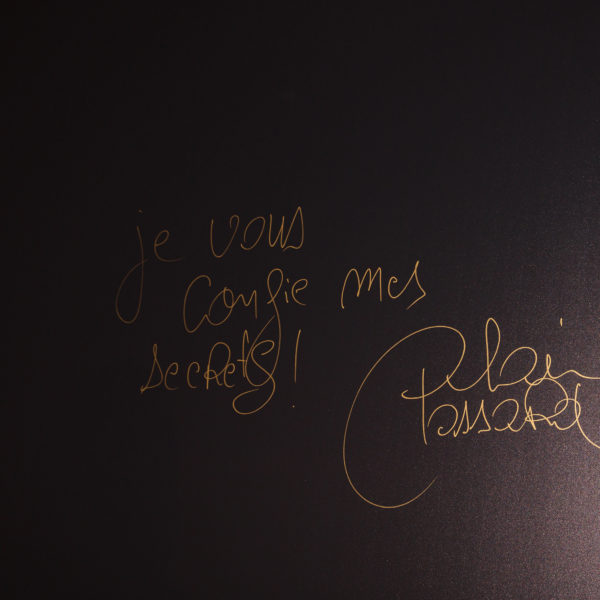 je vous
confie mes
secrets !
Alain
Passard